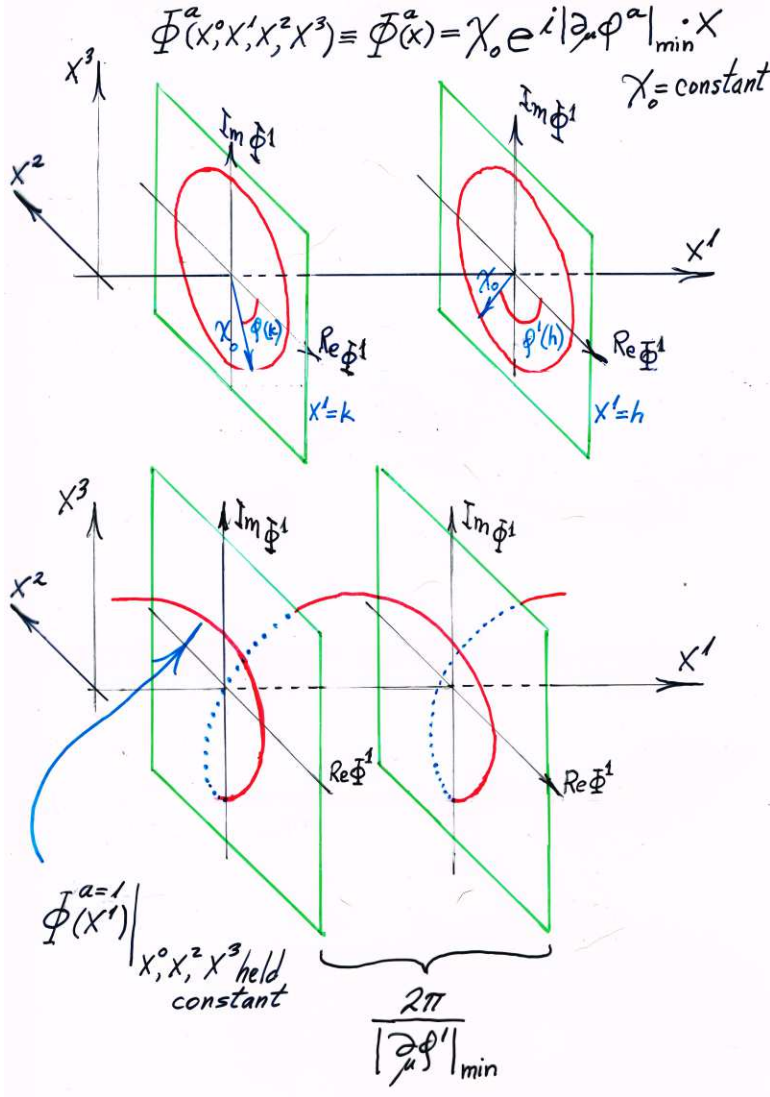 Φᵃ(X⁰,X¹,X²,X³) ≡ Φᵃ(x) = χ₀ e^{i|∂_μ φᵃ|_min · X}
χ₀ = constant
X³
Im Φ¹
Im Φ¹
X²
X¹
χ₀
φ(k)
Re Φ¹
X¹=k
χ₀
φ¹(h)
Re Φ¹
X¹=h
X³
Im Φ¹
Im Φ¹
X²
X¹
Re Φ¹
Re Φ¹
Φ^{a=1}(X¹)|
X⁰,X²,X³ held
constant
2π
|∂_μ φ¹|_min